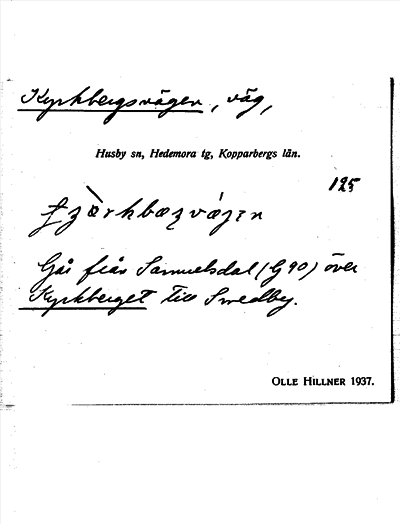 Kyrkbergsvägen, väg,
Husby sn, Hedemora tg, Kopparbergs län.
125
Går från Samuelsdal (G90) över
Kyrkberget till Smedby.
OLLE HILLNER 1937.